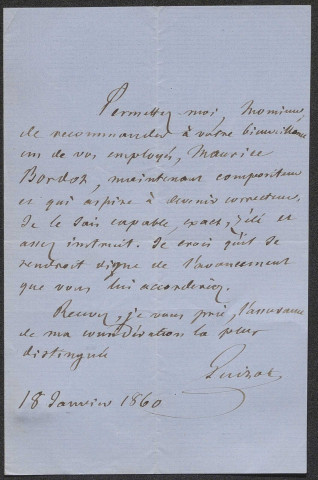 Permettez moi, Monsieur,
de recommander à votre bienveillance
un de vos employés, Maurice
Bordot, maintenant compositeur
et qui aspire à devenir correcteur.
Je le sais capable, exact, zélé et
assez instruit. Je crois qu'il se
rendroit digne de l'avancement
que vous lui accorderiez.
Recevez, je vous prie, l'assurance
de ma considération la plus
distinguée
Guizot
18 Janvier 1860